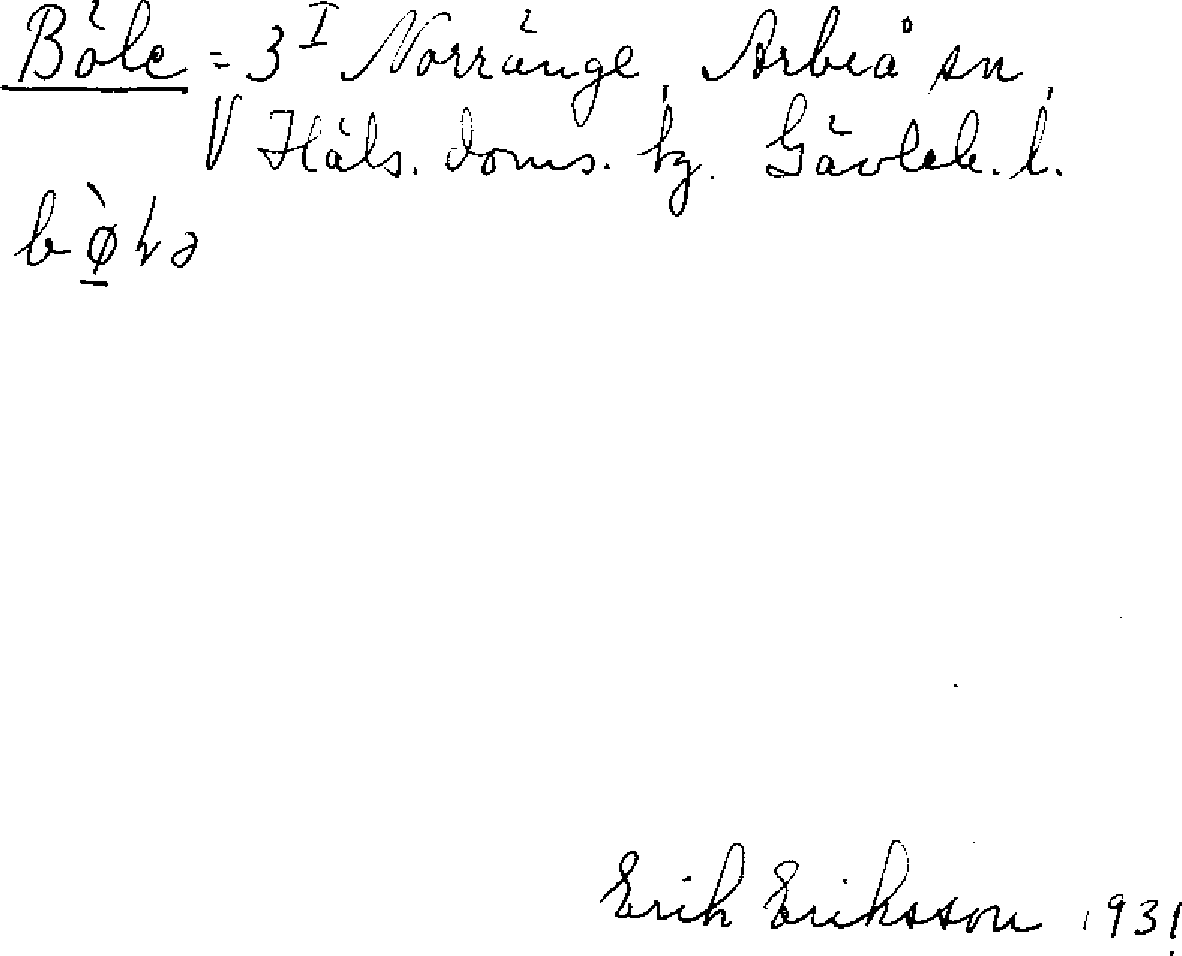 Böle = 3 I Norränge, Arbrå sn,
V Häls. doms. hg. Gävleb. l.
Erik Eriksson 1931